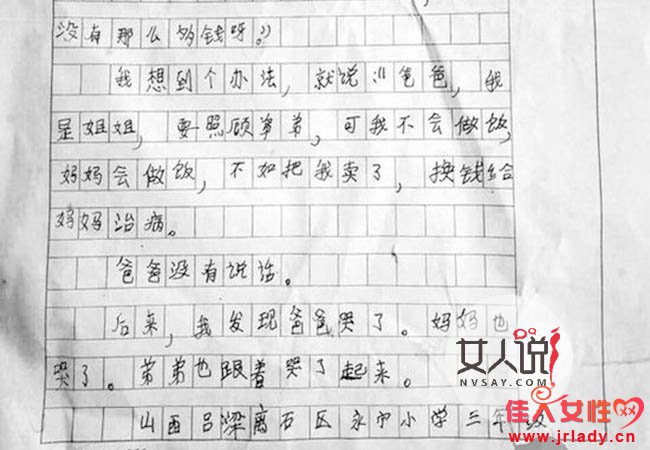 没有那么多钱呀。”
我想到个办法，就说“爸爸，我
是姐姐，要照顾弟弟，可我不会做饭，
妈妈会做饭，不如把我卖了，换钱给
妈妈治病。
爸爸没有说话。
后来，我发现爸爸哭了。妈妈也
哭了。弟弟也跟着哭了起来。
山西吕梁离石区永宁小学三年级
女人说
NVSAY.COM
佳人女性网
www.jrlady.cn